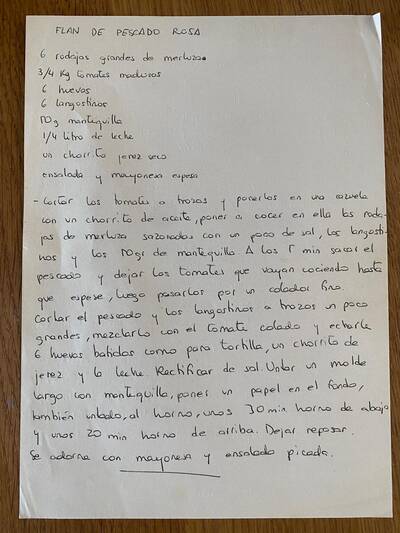 FLAN DE PESCADO ROSA
6 rodajas grandes de merluza.
3/4 Kg tomates maduros
6 huevos
6 langostinos
100g mantequilla
1/4 litro de leche
un chorrito jerez seco
ensalada y mayonesa espesa
- Cortar los tomates a trozos y ponerlos en una cazuela
con un chorrito de aceite, poner a cocer en ella las roda-
jas de merluza sazonadas con un poco de sal, los langosti-
nos y los 100gr de mantequilla. A los 5 min sacar el
pescado y dejar los tomates que vayan cociendo hasta
que espese, luego pasarlos por un colador fino.
Cortar el pescado y los langostinos a trozos un poco
grandes, mezclarlo con el tomate colado y echarle
6 huevos batidos como para tortilla, un chorrito de
jerez y la leche. Rectificar de sal. Untar un molde
largo con mantequilla, poner un papel en el fondo,
también untado, al horno, unos 30 min horno de abajo
y unos 20 min horno de arriba. Dejar reposar.
Se adorna con mayonesa y ensalada picada.